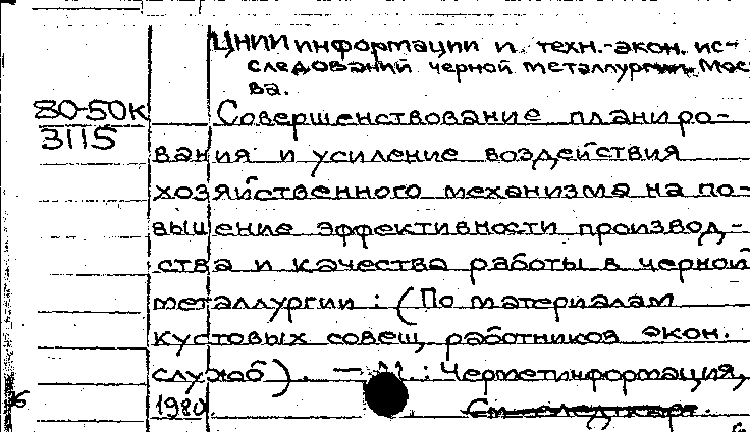 ЦНИИ информации и техн.-экон. ис-
следований черной металлургии. Мос
ва.
80-50К
3115
Совершенствование планиро-
вания и усиление воздействия
хозяйственного механизма на по-
вышение эффективности производ-
ства и качества работы в черной
металлургии: (По материалам
кустовых совещ. работников экон.
служб). — М.: Черметинформация,
1980.
См. след. карт.